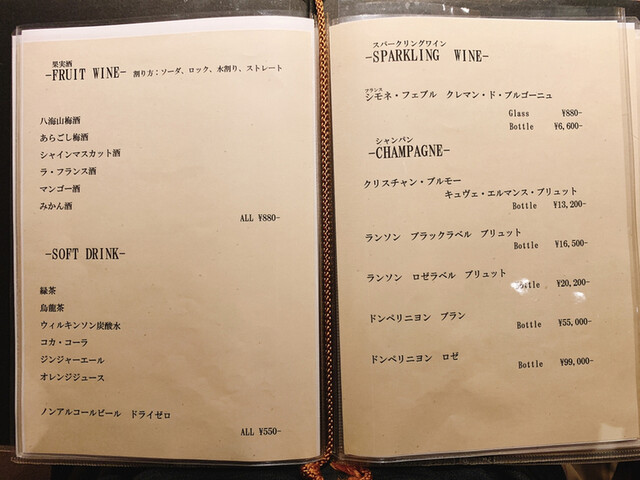 果実酒
-FRUIT WINE- 割り方；ソーダ、ロック、水割り、ストレート
八海山梅酒
あらごし梅酒
シャインマスカット酒
ラ・フランス酒
マンゴー酒
みかん酒
ALL ¥880-
-SOFT DRINK-
緑茶
烏龍茶
ウィルキンソン炭酸水
コカ・コーラ
ジンジャーエール
オレンジジュース
ノンアルコールビール ドライゼロ
ALL ¥550-
スパークリングワイン
-SPARKLING WINE-
フランス
シモネ・フェブル クレマン・ド・ブルゴーニュ
Glass ¥880-
Bottle ¥6,600-
シャンパン
-CHAMPAGNE-
クリスチャン・ブルモー
キュヴェ・エルマンス・ブリュット
Bottle ¥13,200-
ランソン ブラックラベル ブリュット
Bottle ¥16,500-
ランソン ロゼラベル ブリュット
Bottle ¥20,200-
ドンペリニヨン ブラン
Bottle ¥55,000-
ドンペリニヨン ロゼ
Bottle ¥99,000-